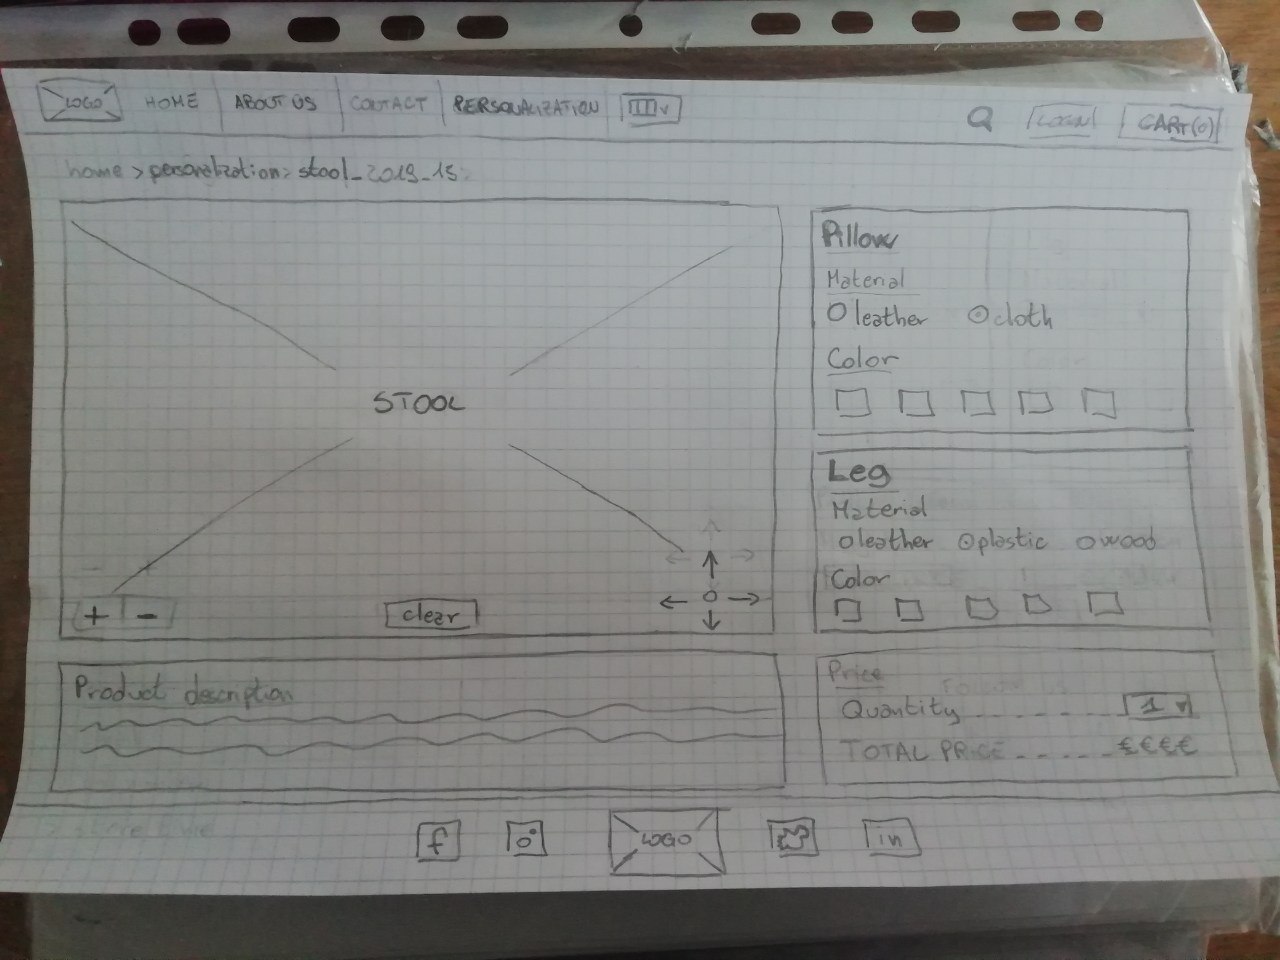 LOGO HOME ABOUT US CONTACT PERSONALIZATION
LOGIN CART(0)
home > personalization > stool_2019_15
STOOL
+ -
clear
Pillow
Material
leather cloth
Color
Leg
Material
leather plastic wood
Color
Product description
Price
Quantity ------- 1
TOTAL PRICE ----- €€€€
f LOGO in